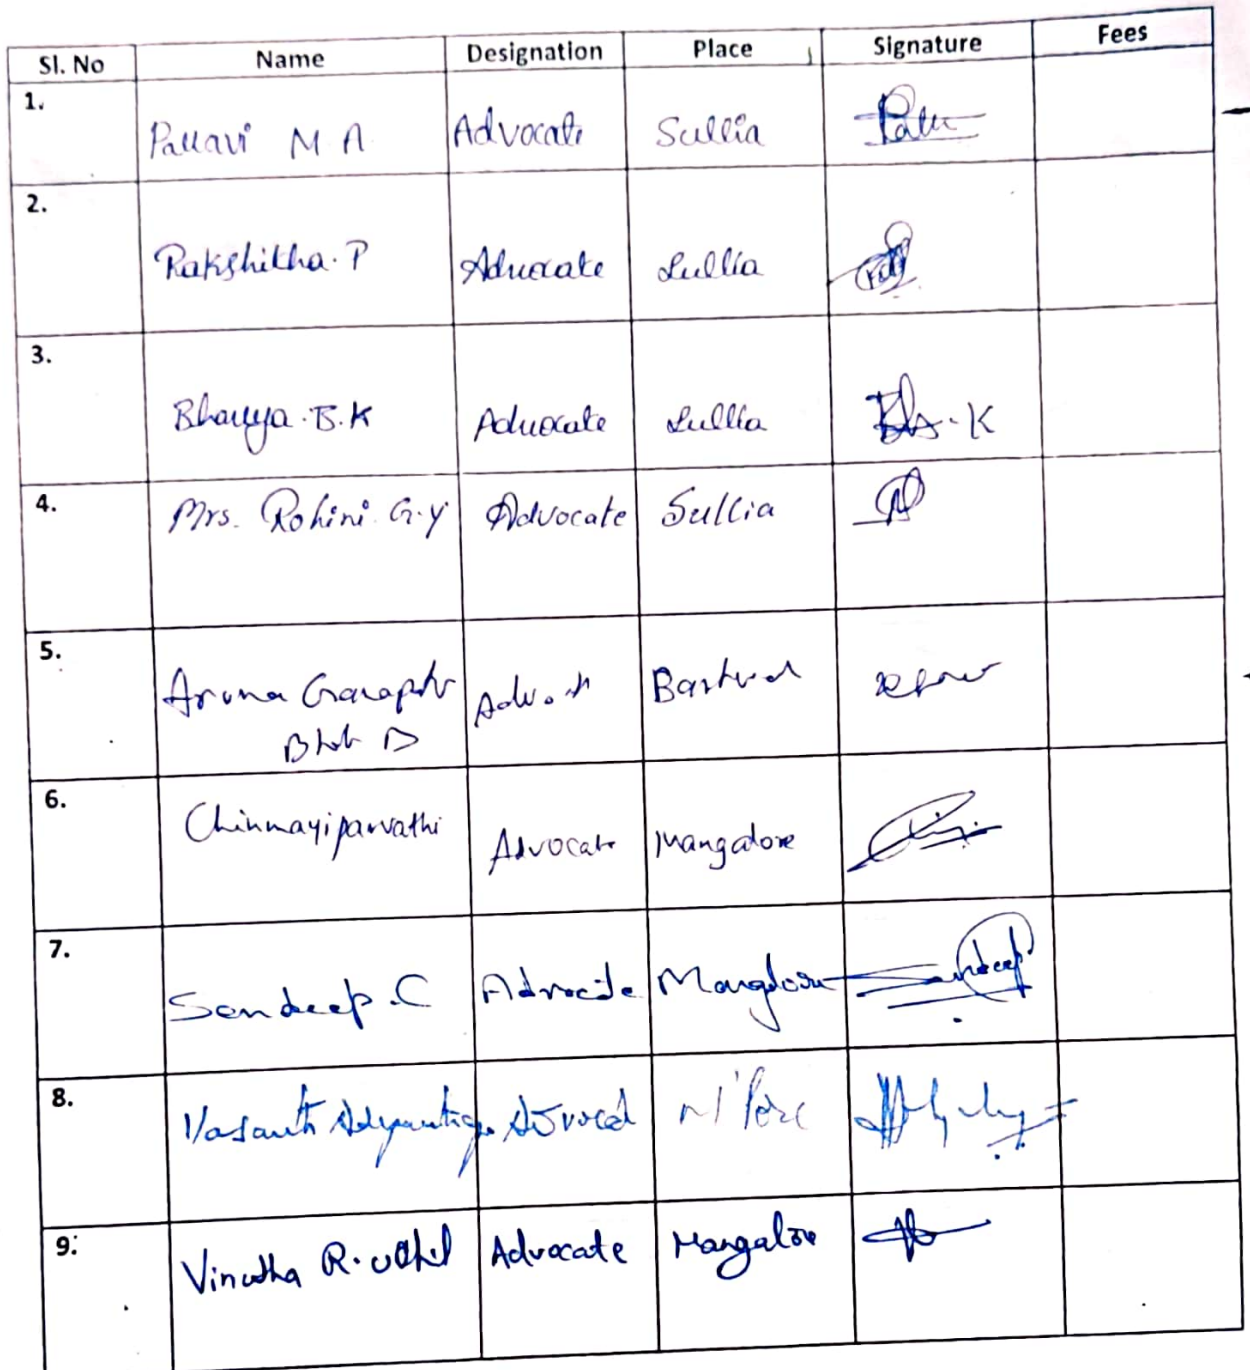 Sl. No Name Designation Place Signature Fees
1. Pallavi M A Advocate Sullia
2. Rakshitha. P Advocate Sullia
3. Bhavya. B. K Advocate Sullia
4. Mrs. Rohini. G. Y Advocate Sullia
5. Aruna Ganapathi
Bhat D
6. Chinmayiparvathi Advocate Mangalore
7. Sandeep. C Advocate Mangalore Sandeep
8. Vasanth Advocate M'lore
9. Vinutha R. Advocate Mangalore